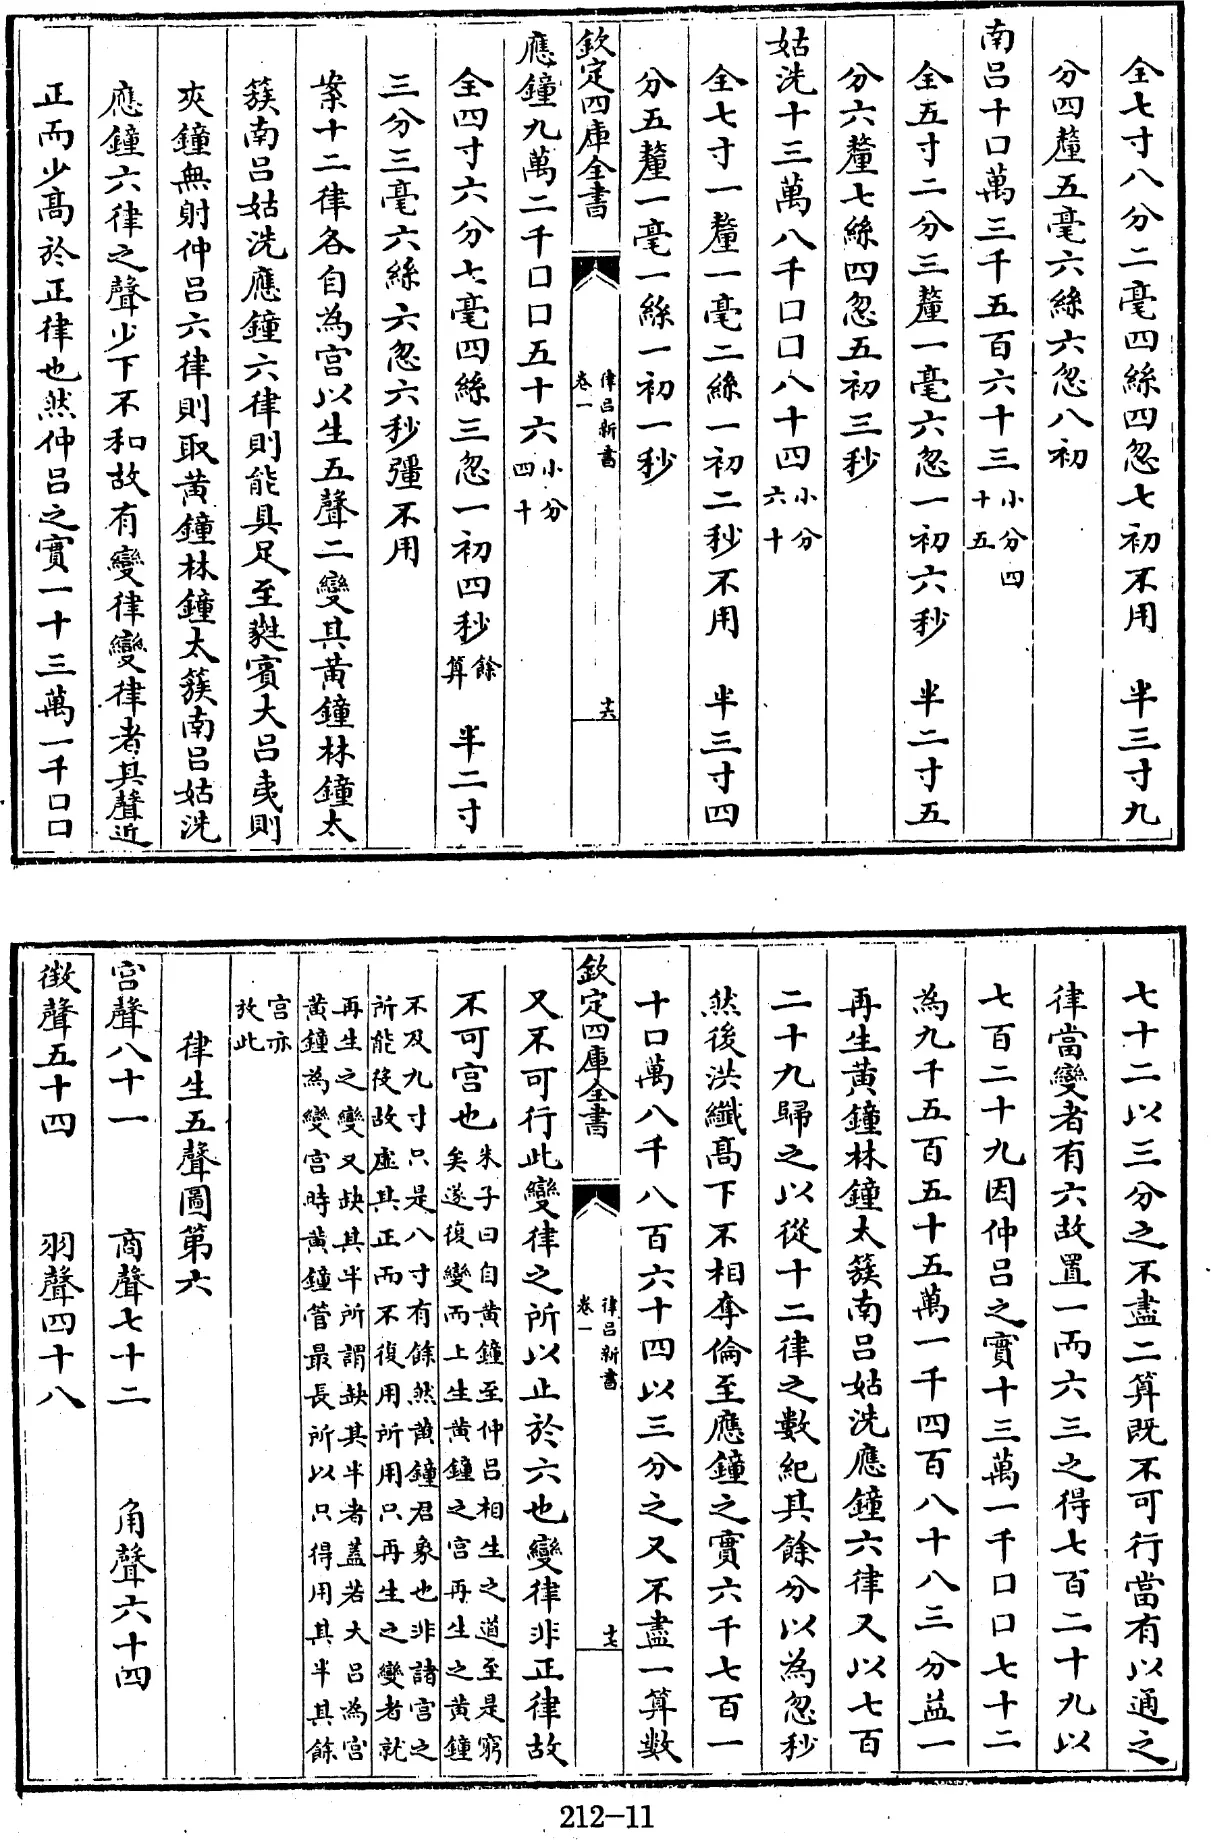 全七寸八分二毫四絲四忽七初不用　半三寸九
分四釐五毫六絲六忽八初
南呂十口萬三千五百六十三小分四十五
全五寸二分三釐一毫六忽一初六秒　半二寸五
分六釐七絲四忽五初三秒
姑洗十三萬八千口口八十四小分六十
全七寸一釐一毫二絲一初二秒不用　半三寸四
分五釐一毫一絲一初一秒
欽定四庫全書　律呂新書卷一　十六
應鐘九萬二千口口五十六小分四十
全四寸六分七毫四絲三忽一初四秒餘算　半二寸
三分三毫六絲六忽六秒彊不用
案十二律各自為宮以生五聲二變其黃鐘林鐘太
簇南呂姑洗應鐘六律則能具足至蕤賓大呂夷則
夾鐘無射仲呂六律則取黃鐘林鐘太簇南呂姑洗
應鐘六律之聲少下不和故有變律變律者其聲近
正而少高於正律也然仲呂之實一十三萬一千口口
七十二以三分之不盡二算既不可行當有以通之
律當變者有六故置一而六三之得七百二十九以
七百二十九因仲呂之實十三萬一千口口七十二
為九千五百五十五萬一千四百八十八三分益一
再生黃鐘林鐘太簇南呂姑洗應鐘六律又以七百
二十九歸之以從十二律之數紀其餘分以為忽秒
然後洪纖高下不相奪倫至應鐘之實六千七百一
十口萬八千八百六十四以三分之又不盡一算數
欽定四庫全書　律呂新書卷一　十七
又不可行此變律之所以止於六也變律非正律故
不可宮也朱子曰自黃鐘至仲呂相生之道至是窮矣遂復變而上生黃鐘之宮再生之黃鐘
不及九寸只是八寸有餘然黃鐘君象也非諸宮之所能役故虛其正而不復用所用只再生之變者就
再生之變又缺其半所謂缺其半者蓋若大呂為宮黃鐘為變宮時黃鐘管最長所以只得用其半其餘
宮亦放此
律生五聲圖第六
宮聲八十一　商聲七十二　角聲六十四
徵聲五十四　羽聲四十八
212-11